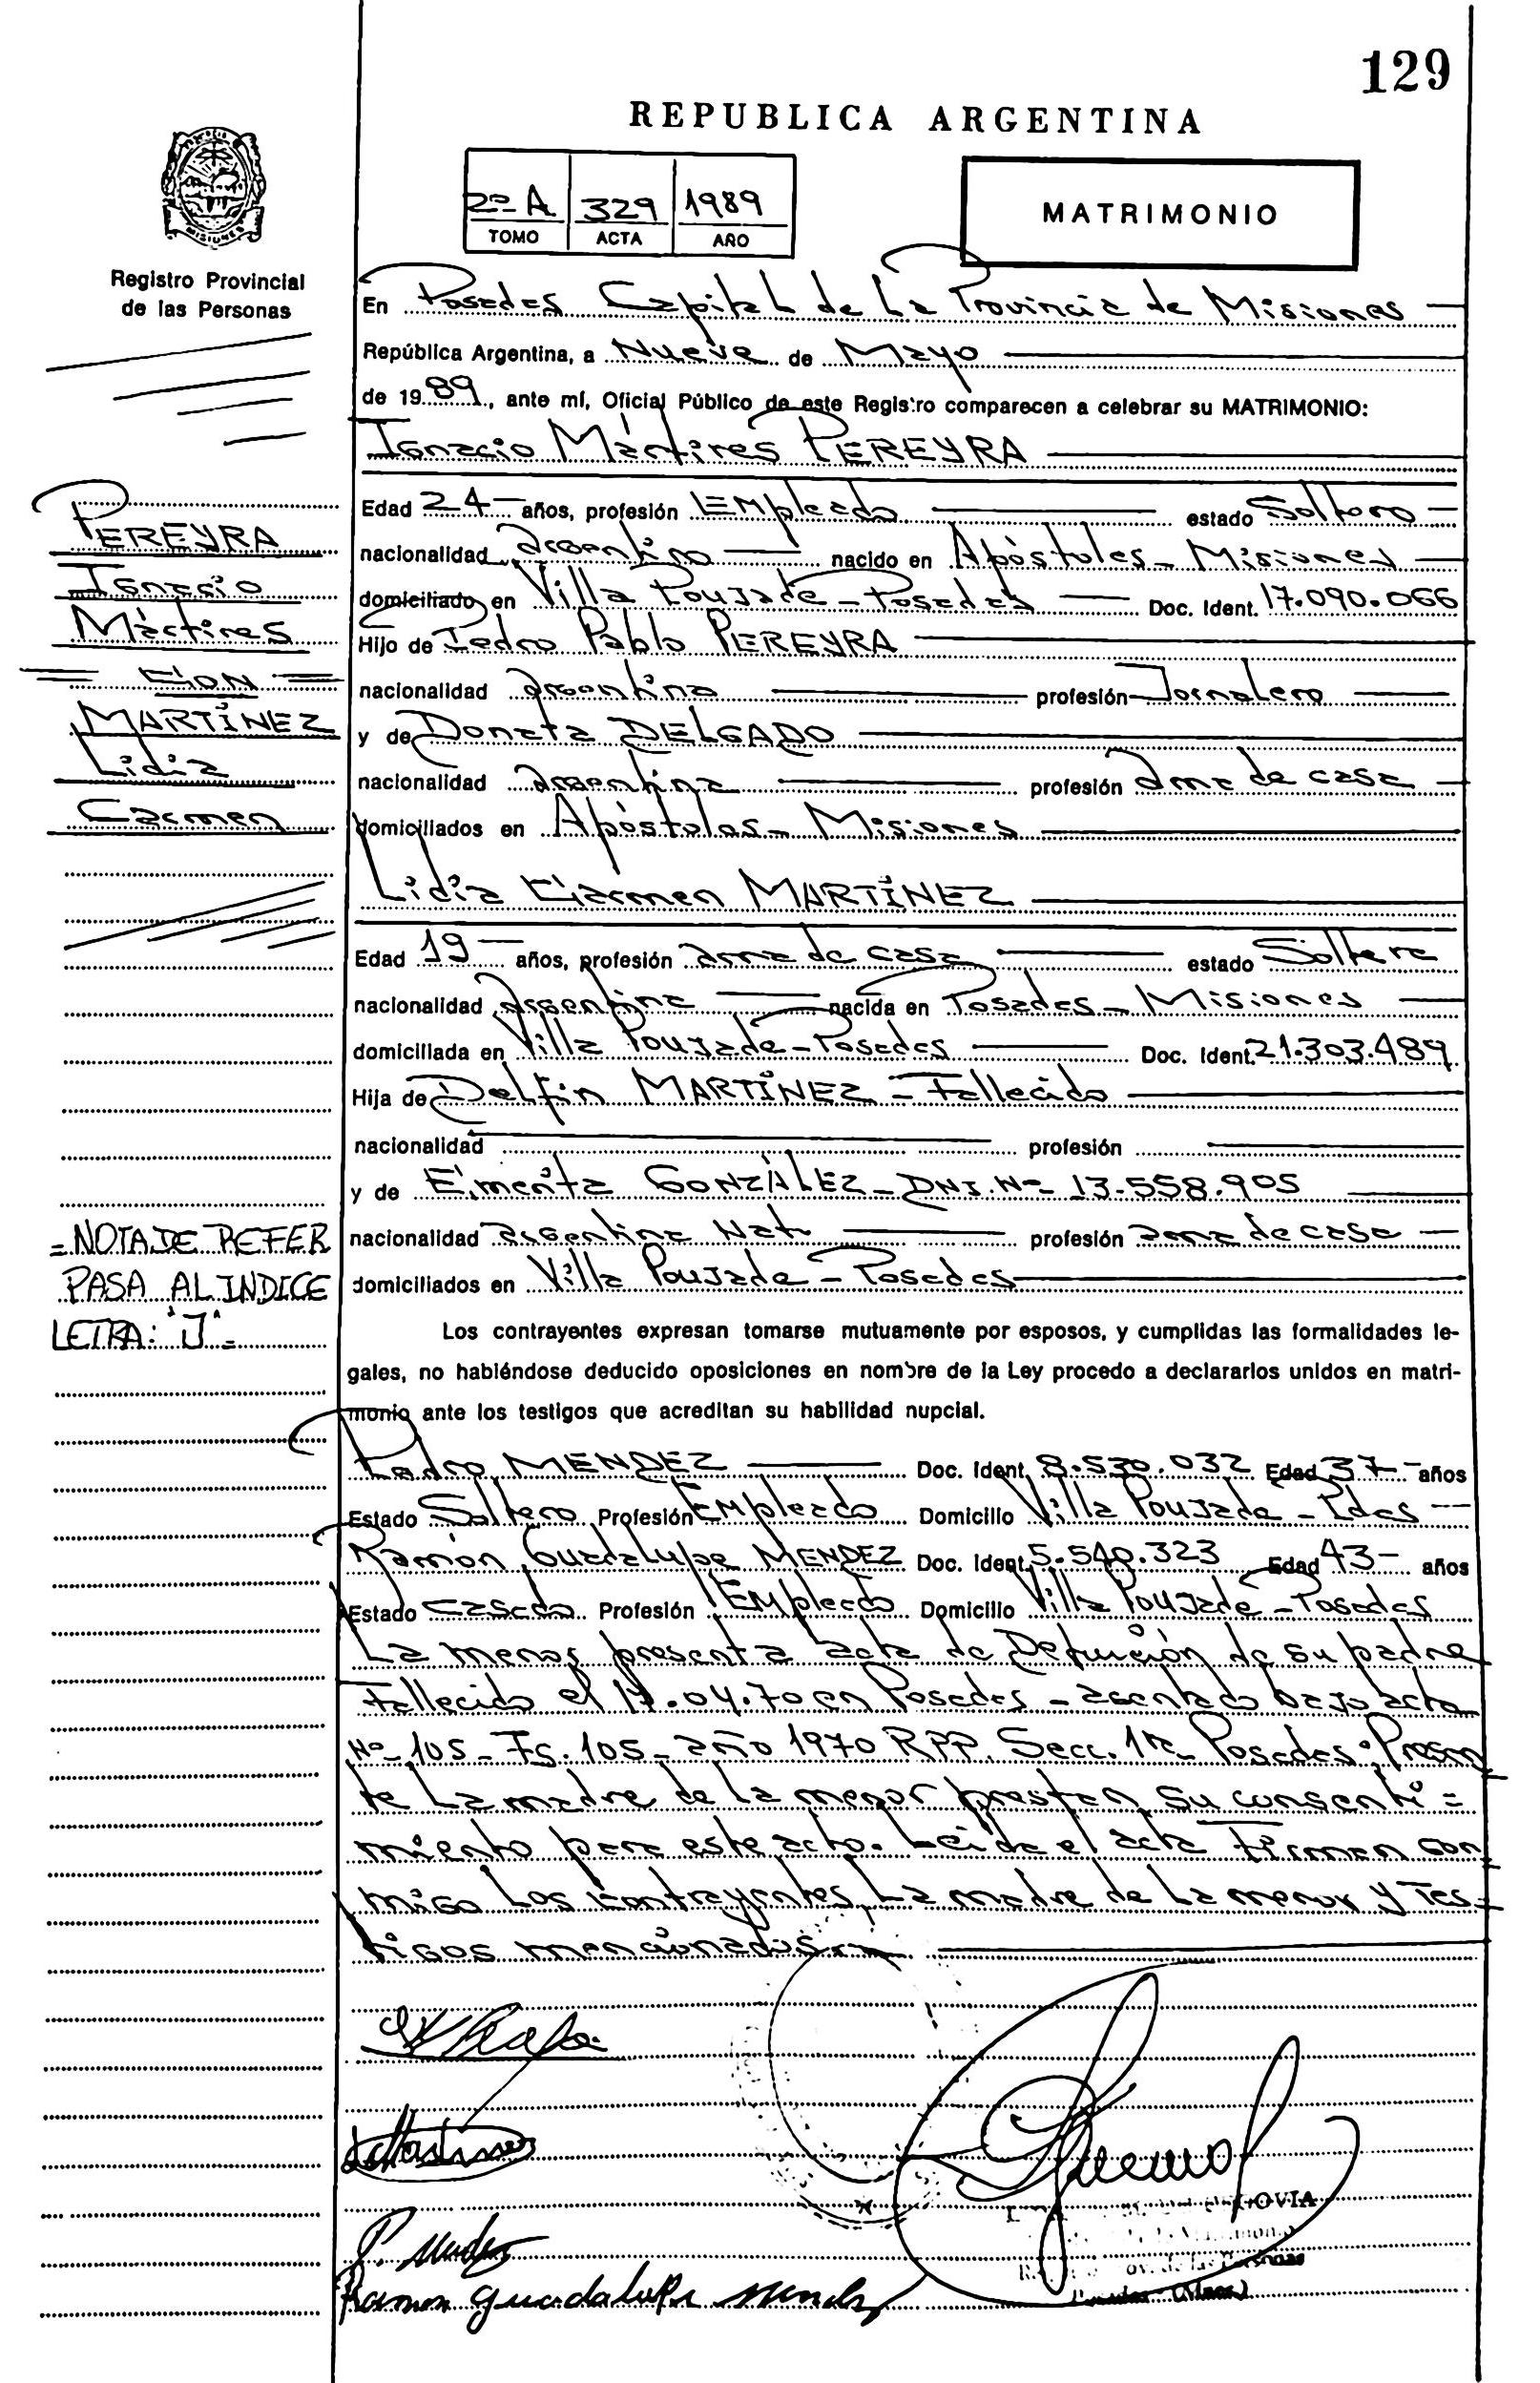 129
REPUBLICA ARGENTINA
2º A 329 1989
TOMO ACTA AÑO
MATRIMONIO
MISIONES
Registro Provincial
de las Personas
En Posadas Capital de La Provincia de Misiones
República Argentina, a Nueve de Mayo
de 1989, ante mí, Oficial Público de este Registro comparecen a celebrar su MATRIMONIO:
Ignacio Mártires PEREYRA
Edad 24 años, profesión Empleado estado Soltero
nacionalidad argentino nacido en Apóstoles - Misiones
domiciliado en Villa Poujade - Posadas Doc. Ident. 17.090.066
Hijo de Pedro Pablo PEREYRA
nacionalidad argentina profesión Jornalero
y de Donata DELGADO
nacionalidad argentina profesión ama de casa
domiciliados en Apóstoles - Misiones
Lidia Carmen MARTÍNEZ
Edad 19 años, profesión ama de casa estado Soltera
nacionalidad Argentina nacida en Posadas - Misiones
domiciliada en Villa Poujade - Posadas Doc. Ident. 21.303.489
Hija de Delfín MARTÍNEZ - Fallecido
nacionalidad profesión
y de Eimenta GONZÁLEZ - DNI. Nº 13.558.905
nacionalidad argentina Nat profesión ama de casa
domiciliados en Villa Poujade - Posadas
PEREYRA
Ignacio
Mártires
= CON =
MARTÍNEZ
Lidia
Carmen
= NOTA DE REFER
PASA AL INDICE
LETRA: "J" =
Los contrayentes expresan tomarse mutuamente por esposos, y cumplidas las formalidades le-
gales, no habiéndose deducido oposiciones en nombre de la Ley procedo a declararlos unidos en matri-
monio ante los testigos que acreditan su habilidad nupcial.
Pedro MENDEZ Doc. Ident. 8.530.032 Edad 37 años
Estado Soltero Profesión Empleado Domicilio Villa Poujade - Pdas
Ramón Guadalupe MENDEZ Doc. Ident. 5.540.323 Edad 43 años
Estado casado Profesión Empleado Domicilio Villa Poujade - Posadas
La menor presenta acta de Defunción de su padre
Fallecido el 17.04.70 en Posadas - asentado bajo acta
Nº 105 - Fs. 105 - año 1970 RPP. Secc. 1ª - Posadas; Presen
te La madre de la menor prestan su consenti =
miento para este acto. Leída el acta Firman con
migo Los contrayentes, La madre de La menor y Tes =
tigos mencionados.
P. Mendez
Ramon Guadalupe Mendez